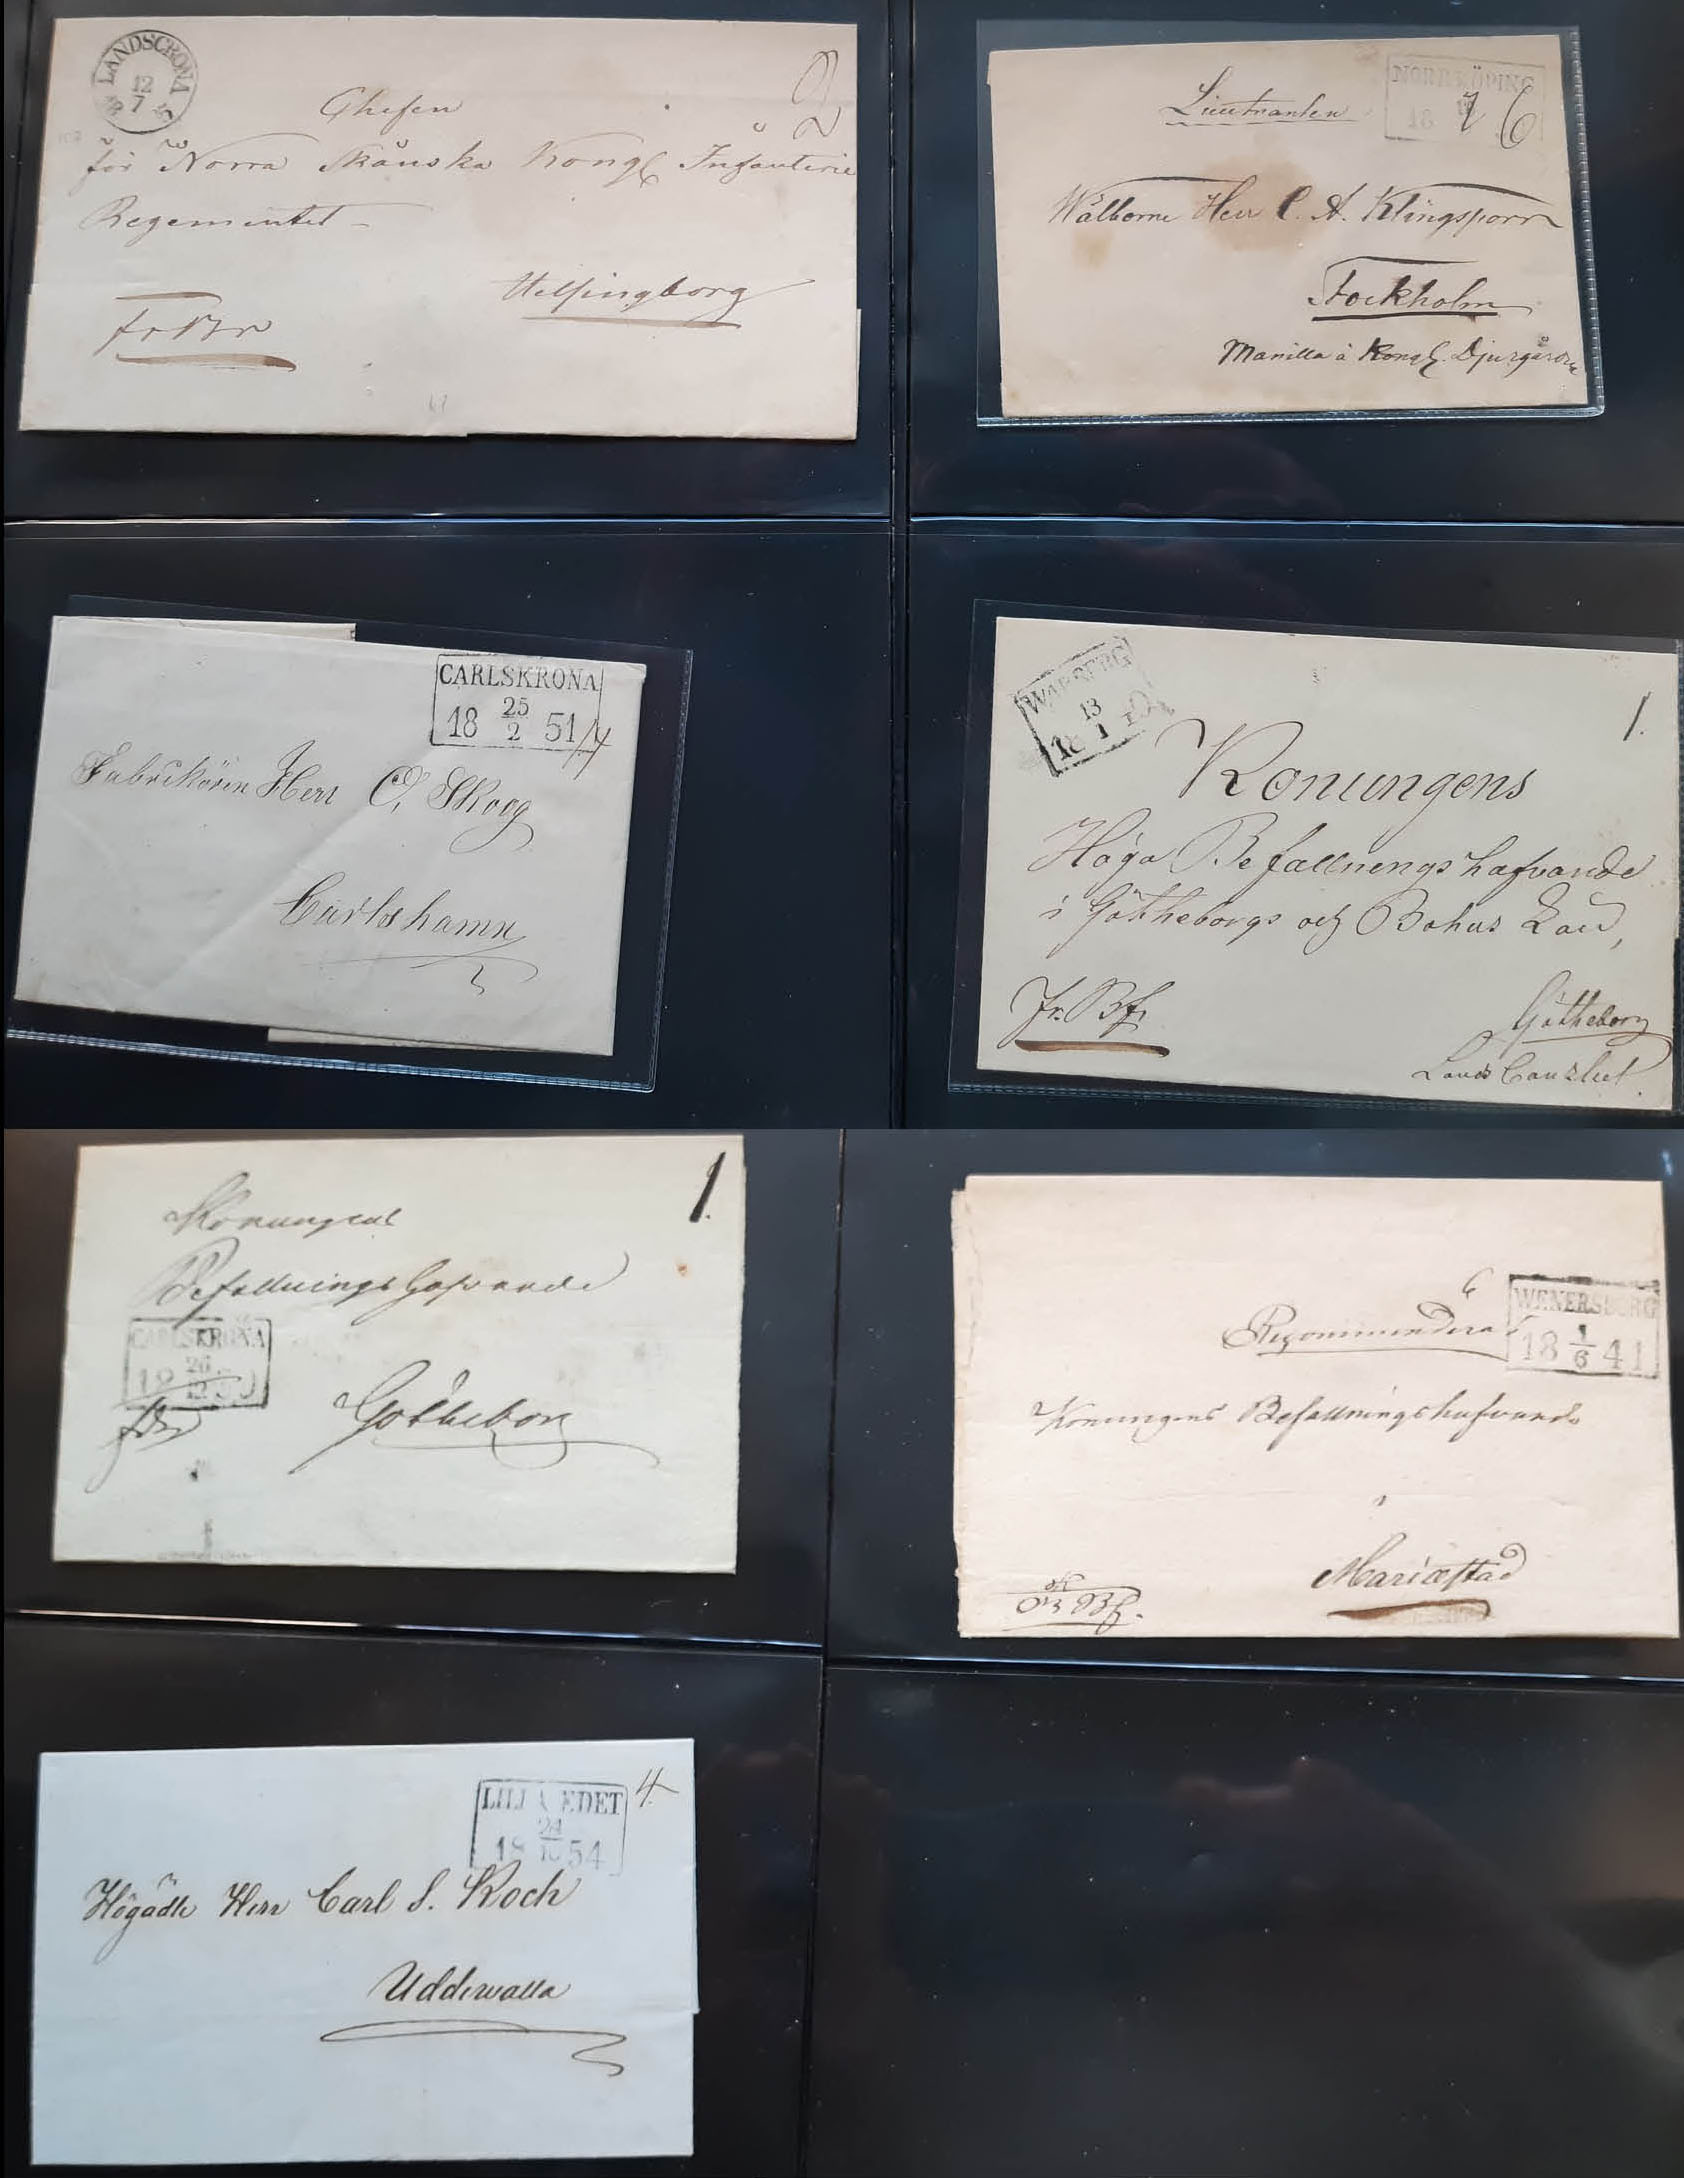 LANDSCRONA
12
7
2
Chefen
för Norra Skånska Kongl Infanterie
Regementet
Helsingborg
fr Br
NORRKÖPING
18
6
Lieutnanten
Wälborne Herr C. A. Klingsporr
Stockholm
Manilla å Kongl. Djurgården
CARLSKRONA
18 25 51
2
Fabrikören Herr C, Skoog
Carlshamn
WARBERG
13
18 1
1.
Konungens
Höga Befallningshafvande
i Götheborgs och Bohus Län,
Fr. Bf.
Götheborg
Lands Canzliet.
1.
Konungens
Befallningshafvande
CARLSKRONA
26
12
Götheborg
6
WENERSBORG
18 1 41
6
Recommenderas
Konungens Befallningshafvande
i
Mariæstad
Bf.
LILLA EDET
24
18 10 54
4.
Högädle Herr Carl S. Koch
Uddewalla